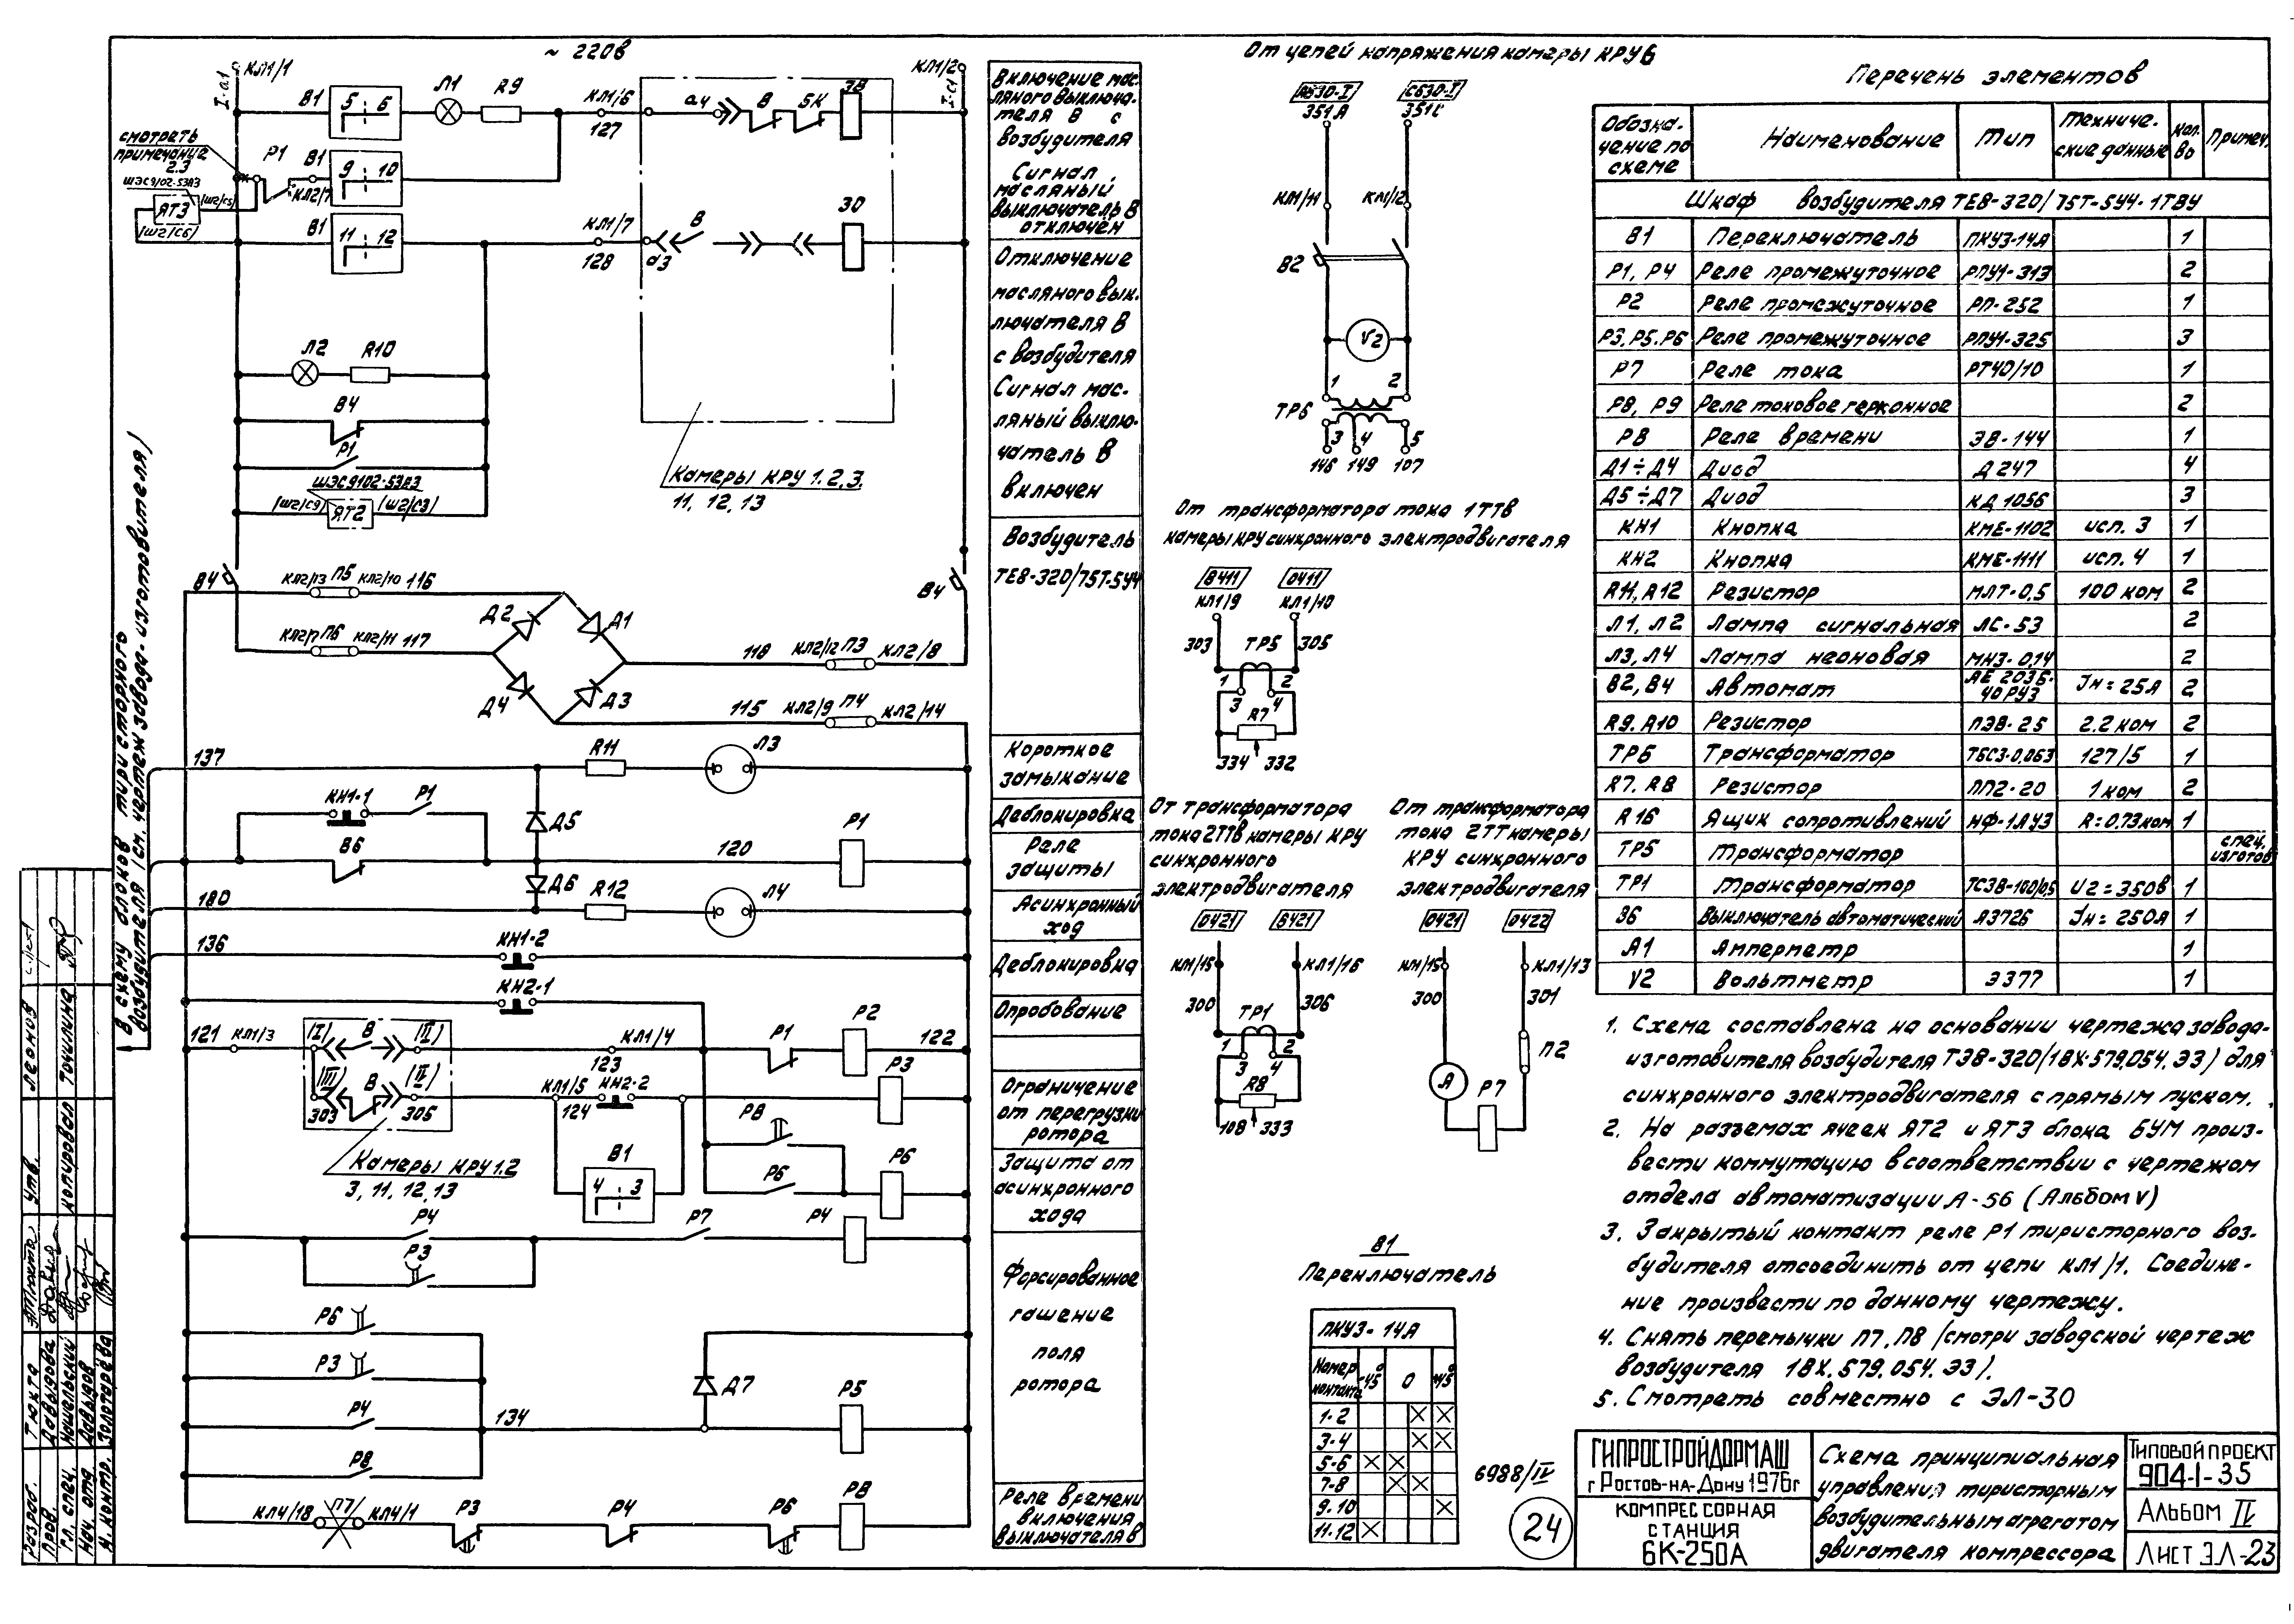 ~ 220в
КЛ1/1
I-a1
КЛ1/2
I-с1
В1
5 6
Л1
R9
КЛ1/6
127
а4
В
5К
смотреть
примечание
2.3
ШЭС9102-53А3
ЯТ3
(Ш2/С5)
(Ш2/С6)
Р1
КЛ2/7
В1
9 10
В1
11 12
КЛ1/7
128
а3
В
30
Л2
R10
В4
Р1
ШЭС9102-53А3
(Ш2/С9)
ЯТ2
(Ш2/С3)
Камеры КРУ 1.2.3.
11, 12, 13
В4
КЛ2/13
П5
КЛ2/10
116
П6
КЛ2/11
117
Д2
Д1
Д4
Д3
118
КЛ2/12
П3
КЛ2/8
115
КЛ2/9
П4
КЛ2/14
В4
137
R11
Л3
КН1-1
Р1
Д5
В6
120
Р1
Д6
180
R12
Л4
136
КН1-2
КН2-1
121
КЛ1/3
(I)
В
(II)
КЛ1/4
123
Р1
Р2
122
(III)
В
303
305
КЛ1/5
124
КН2-2
Р3
Камеры КРУ 1.2
3, 11, 12, 13
В1
4 3
Р8
Р6
Р6
Р4
Р3
Р7
Р4
Р6
Р3
Р4
Р8
134
Д7
Р5
КЛ4/18
П7
КЛ4/1
Р3
Р4
Р6
Р8
В схему блоков тиристорного
возбудителя (см. чертеж завода-изготовителя)
Включение мас-
ляного выключа-
теля В с
возбудителя
Сигнал
масляный
выключатель В
отключен
Отключение
масляного вык-
лючателя В
с возбудителя
Сигнал мас-
ляный выклю-
чатель В
включен
Возбудитель
ТЕ8-320/75Т-5У4
Короткое
замыкание
Деблокировка
Реле
защиты
Асинхронный
ход
Деблокировка
Опробование
Ограничение
от перегрузки
ротора
Защита от
асинхронного
хода
Форсированное
гашение
поля
ротора
Реле времени
включения
выключателя В
От цепей напряжения камеры КРУ6
351А
351С
КЛ1/11
КЛ1/12
В2
V2
1 2
ТР6
3 4 5
146 149 107
От трансформатора тока 1ТТВ
камеры КРУ синхронного электродвигателя
В411
0411
КЛ1/9
КЛ1/10
303
ТР5
305
1 2
3 4
R7
334 332
От трансформатора
тока 2ТТВ камеры КРУ
синхронного
электродвигателя
0421
В421
КЛ1/15
КЛ1/16
300
ТР1
306
1 2
3 4
R8
108 333
От трансформатора
тока 2ТТ камеры
КРУ синхронного
электродвигателя
0421
0422
КЛ1/15
КЛ1/13
300
301
П2
А
Р7
В1
Переключатель
ПКУ3-14А
Номер
контакта
-45°
0
+45°
1-2
3-4
5-6
7-8
9-10
11-12
6988/IV
24
Перечень элементов
Обозна-
чение по
схеме
Наименование
Тип
Техниче-
ские данные
Кол.
во
Примеч.
Шкаф возбудителя ТЕ8-320/75Т-5У4-1ТВУ
В1 Переключатель ПКУ3-14А 1
Р1, Р4 Реле промежуточное РПУ1-313 2
Р2 Реле промежуточное РП-252 1
Р3, Р5, Р6 Реле промежуточное РПУ1-325 3
Р7 Реле тока РТ40/10 1
Р8, Р9 Реле токовое герконное 2
Р8 Реле времени ЭВ-144 1
Д1÷Д4 Диод Д247 4
Д5÷Д7 Диод КД105б 3
КН1 Кнопка КМЕ-1102 исп. 3 1
КН2 Кнопка КМЕ-1111 исп. 4 1
R11, R12 Резистор МЛТ-0,5 100 ком 2
Л1, Л2 Лампа сигнальная ЛС-53 2
Л3, Л4 Лампа неоновая МН3-0,14 2
В2, В4 Автомат АЕ 2036-40РУ3 Jн=25А 2
R9, R10 Резистор ПЭВ-25 2.2 ком 2
ТР6 Трансформатор ТБС3-0,063 127/5 1
R7, R8 Резистор ПП2-20 1 ком 2
R16 Ящик сопротивлений НФ-1АУ3 R=0,73ком 1
ТР5 Трансформатор спец. изготов.
ТР1 Трансформатор ТСЗВ-100/0,5 U2=350в 1
В6 Выключатель автоматический А3726 Jн=250А 1
А1 Амперметр 1
V2 Вольтметр Э377 1
1. Схема составлена на основании чертежа завода-
изготовителя возбудителя ТЭ8-320/18Х.579.054.Э3) для
синхронного электродвигателя с прямым пуском.
2. На разъемах ячеек ЯТ2 и ЯТ3 блока БУМ произ-
вести коммутацию в соответствии с чертежом
отдела автоматизации А-56 (Альбом V)
3. Закрытый контакт реле Р1 тиристорного воз-
будителя отсоединить от цепи КЛ1/1. Соедине-
ние произвести по данному чертежу.
4. Снять перемычки П7, П8 (смотри заводской чертеж
возбудителя 18Х.579.054.Э3).
5. Смотреть совместно с ЭЛ-30
ГИПРОСТРОЙДОРМАШ
г Ростов-на-Дону 1976г
КОМПРЕССОРНАЯ
СТАНЦИЯ
6К-250А
Схема принципиальная
управления тиристорным
возбудительным агрегатом
двигателя компрессора
ТИПОВОЙ ПРОЕКТ
904-1-35
АЛЬБОМ IV
ЛИСТ ЭЛ-23
Разраб. Тюхта
Пров. Давыдова
Гл. спец. Кошельский
Нач. отд. Давыдов
Н. контр. Золотарева
Утв. Леонов
Копировал Точилина